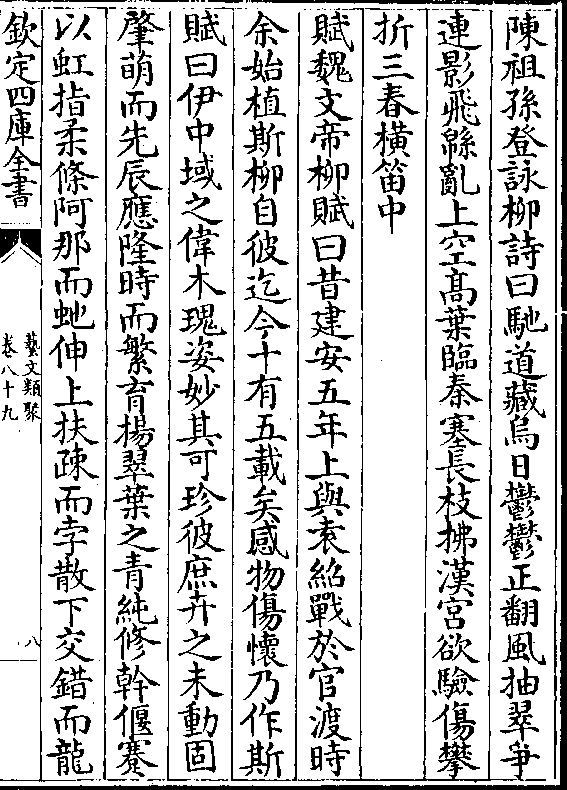 陳祖孫登詠柳詩曰馳道藏烏日鬱鬱正翻風抽翠爭
連影飛緜亂上空高葉臨秦塞長枝拂漢宮欲驗傷攀
折三春橫笛中
賦魏文帝柳賦曰昔建安五年上與袁紹戰於官渡時
余始植斯柳自彼迄今十有五載矣感物傷懷乃作斯
賦曰伊中域之偉木瑰姿妙其可珍彼庶卉之未動固
肇萌而先辰應隆時而繁育揚翠葉之青純修幹偃蹇
以虹指柔條阿那而虵伸上扶疎而孛散下交錯而龍
欽定四庫全書
藝文類聚
卷八十九
八